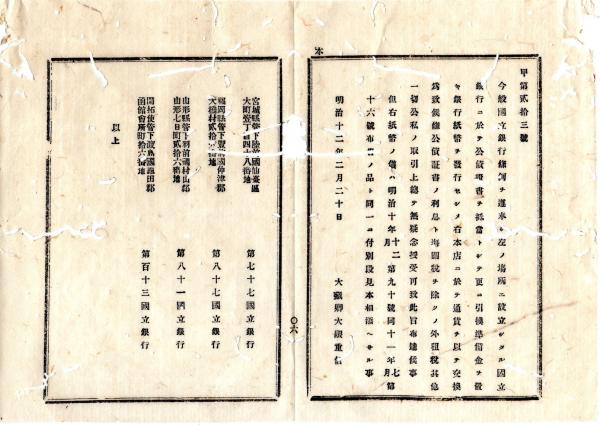 本
甲第貳拾三號
今般國立銀行條例ヲ遵奉シ左ノ塲所ニ設立シタル國立
銀行ニ於テ公債證書ヲ抵當トシテ更ニ引換準備金ヲ設
キ銀行紙幣ヲ發行セシメ右本店ニ於テ通貨ヲ以テ交換
爲致候條公債証書ノ利息ト海關税ヲ除クノ外租税其他
一切公私ノ取引上總テ無疑念授受可致此旨布達候事
但右紙幣ノ儀ハ明治十年十二月第九十號同十一年七月第
十六號布告ノ品ト同一ニ付別段見本相添ヘサル事
明治十二年二月二十日
大藏卿大隈重信
〇六
宮城縣管下陸前國仙臺區
大町壹丁目四十八番地
第七十七國立銀行
福岡縣管下豐前國仲津郡
大橋村貳拾六番地
第八十七國立銀行
山形縣管下羽前國村山郡
山形七日町貳拾六番地
第八十一國立銀行
開拓使管下渡島國龜田郡
函館會所町拾六番地
第百十三國立銀行
以上